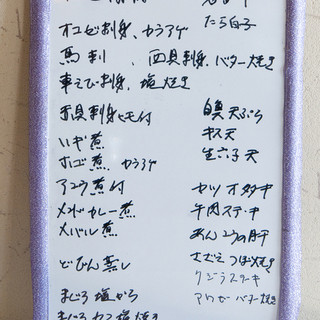 たら白子
オコゼ刺身、カラアゲ
馬刺、西貝刺身、バター焼き
車えび刺身、塩焼き
赤貝刺身ヒモ付
ハギ煮
ホゴ煮 カラアゲ
アコウ煮付
メイボカレー煮
メバル煮
どびん蒸し
まぐろ塩から
まぐろカマ塩焼き
白魚天ぷら
キス天
生穴子天
カツオタタキ
牛肉ステーキ
あんこうの肝
さざえつぼ焼き
クジラステーキ
アワビバター焼き